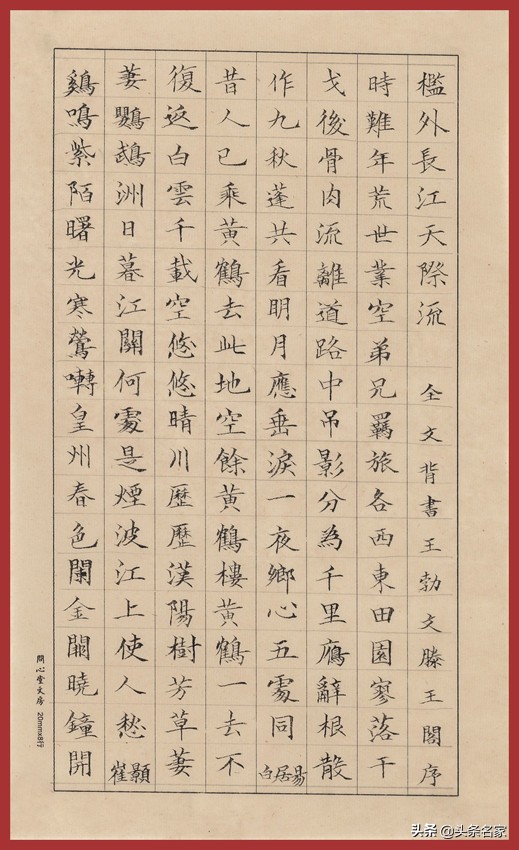 檻外長江天際流 仝文背書王勃文滕王閣序
時難年荒世業空弟兄羈旅各西東田園寥落干
戈後骨肉流離道路中吊影分為千里鴈辭根散
作九秋蓬共看明月應垂淚一夜鄉心五處同 白居易
昔人已乘黃鶴去此地空餘黃鶴樓黃鶴一去不
復返白雲千載空悠悠晴川歷歷漢陽樹芳草萋
萋鸚鵡洲日暮江關何處是煙波江上使人愁 崔顥
鷄鳴紫陌曙光寒鶯囀皇州春色闌金闕曉鐘開
問心堂文房 20mmx8行
头条 @头条名家